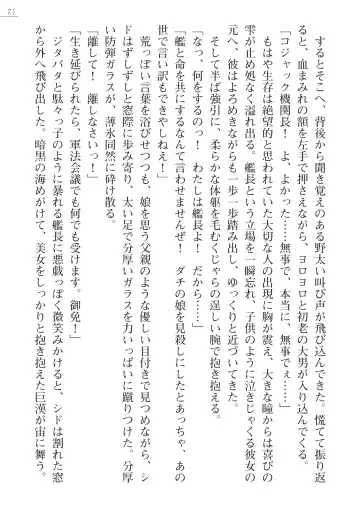 21
するとそこへ、背後から聞き覚えのある野太い叫び声が飛び込んできた。慌てて振り返
ると、血まみれの額を左手で押さえながら、ヨロヨロと初老の大男が入り込んでくる。
「コジャック機関長！　よ、よかった……無事で、本当に、無事でぇ……」
もはや生存は絶望的と思われていた大切な人の出現に胸が震え、大きな瞳からは喜びの
雫が止め処なく溢れ出る。艦長という立場を一瞬忘れ、子供のように泣きじゃくる彼女の
元へ、彼はよろめきながらも一歩一歩踏み出し、ゆっくりと近づいてきた。
そして半ば強引に、柔らかな体躯を毛むくじゃらの逞しい腕で抱き抱える。
「なっ、何をするのっ！　わたしは艦長よ！　だから……」
「艦と命を共にするなんて言わせませんぜ！　ダチの娘を見殺しにしたとあっちゃ、あの
世で言い訳もできやしねぇ！」
荒っぽい言葉を浴びせつつも、娘を思う父親のような優しい目付きで見つめながら、シ
ドはずしずしと窓際に歩み寄り、太い足で分厚いガラスを力いっぱいに蹴りつけた。分厚
い防弾ガラスが、薄氷同然に砕け散る。
「離して！　離しなさいっ！」
「生き延びられたら、軍法会議でも何でも受けます。御免！」
ジタバタと駄々っ子のように暴れる艦長に悪戯っぽく微笑みかけると、シドは割れた窓
から外へ飛び出した。暗黒の海めがけて、美女をしっかりと抱き抱えた巨漢が宙に舞う。